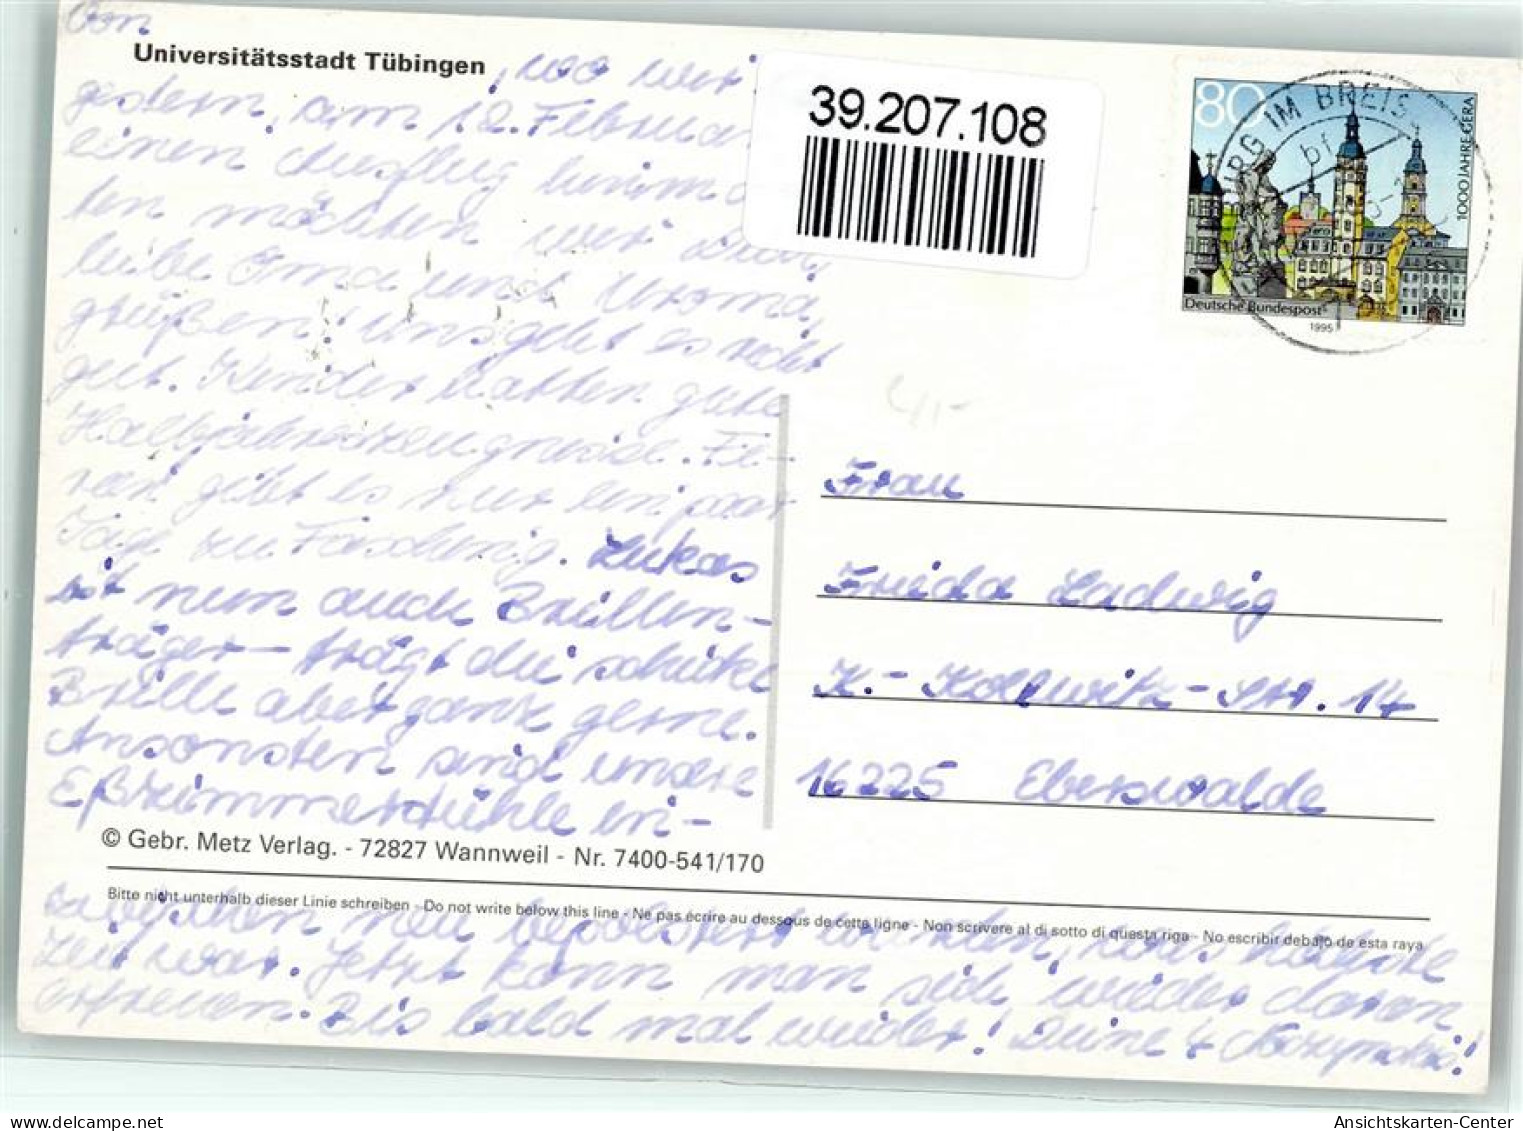 Von
Universitätsstadt Tübingen
, wo wir
gestern, am 12. Februar
einen Ausflug
ten möchten wir dich,
liebe Oma und Uroma,
grüßen! Uns geht es recht
gut. Kinder hatten gute
Halbjahreszeugnisse. Fe-
rien gibt es nur ein paar
Tage zu Fasching. Lukas
ist nun auch Brillen-
träger - trägt die schicke
Brille aber ganz gerne.
Ansonsten sind unsere
Eßzimmerstühle in-
© Gebr. Metz Verlag. - 72827 Wannweil - Nr. 7400-541/170
Bitte nicht unterhalb dieser Linie schreiben - Do not write below this line - Ne pas écrire au dessous de cette ligne - Non scrivere al di sotto di questa riga - No escribir debajo de esta raya
zwischen neu bepolstert worden, was höchste
Zeit war. Jetzt kann man sich wieder daran
erfreuen. Bis bald mal wieder! Deine 4
39.207.108
80
1000 JAHRE GERA
Deutsche Bundespost
1995
URG IM BREIS
Frau
Frieda Ladwig
K.-Kollwitz-Str. 14
16225 Eberswalde
Ansichtskarten-Center
delcampe.net